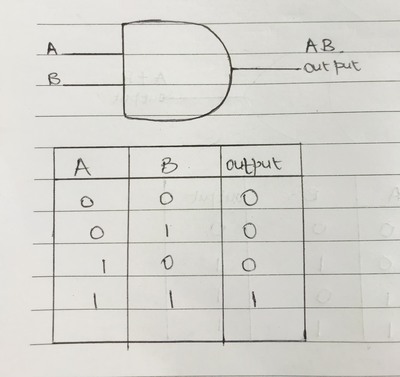 A
B
A B
output
A B output
0 0 0
0 1 0
1 0 0
1 1 1